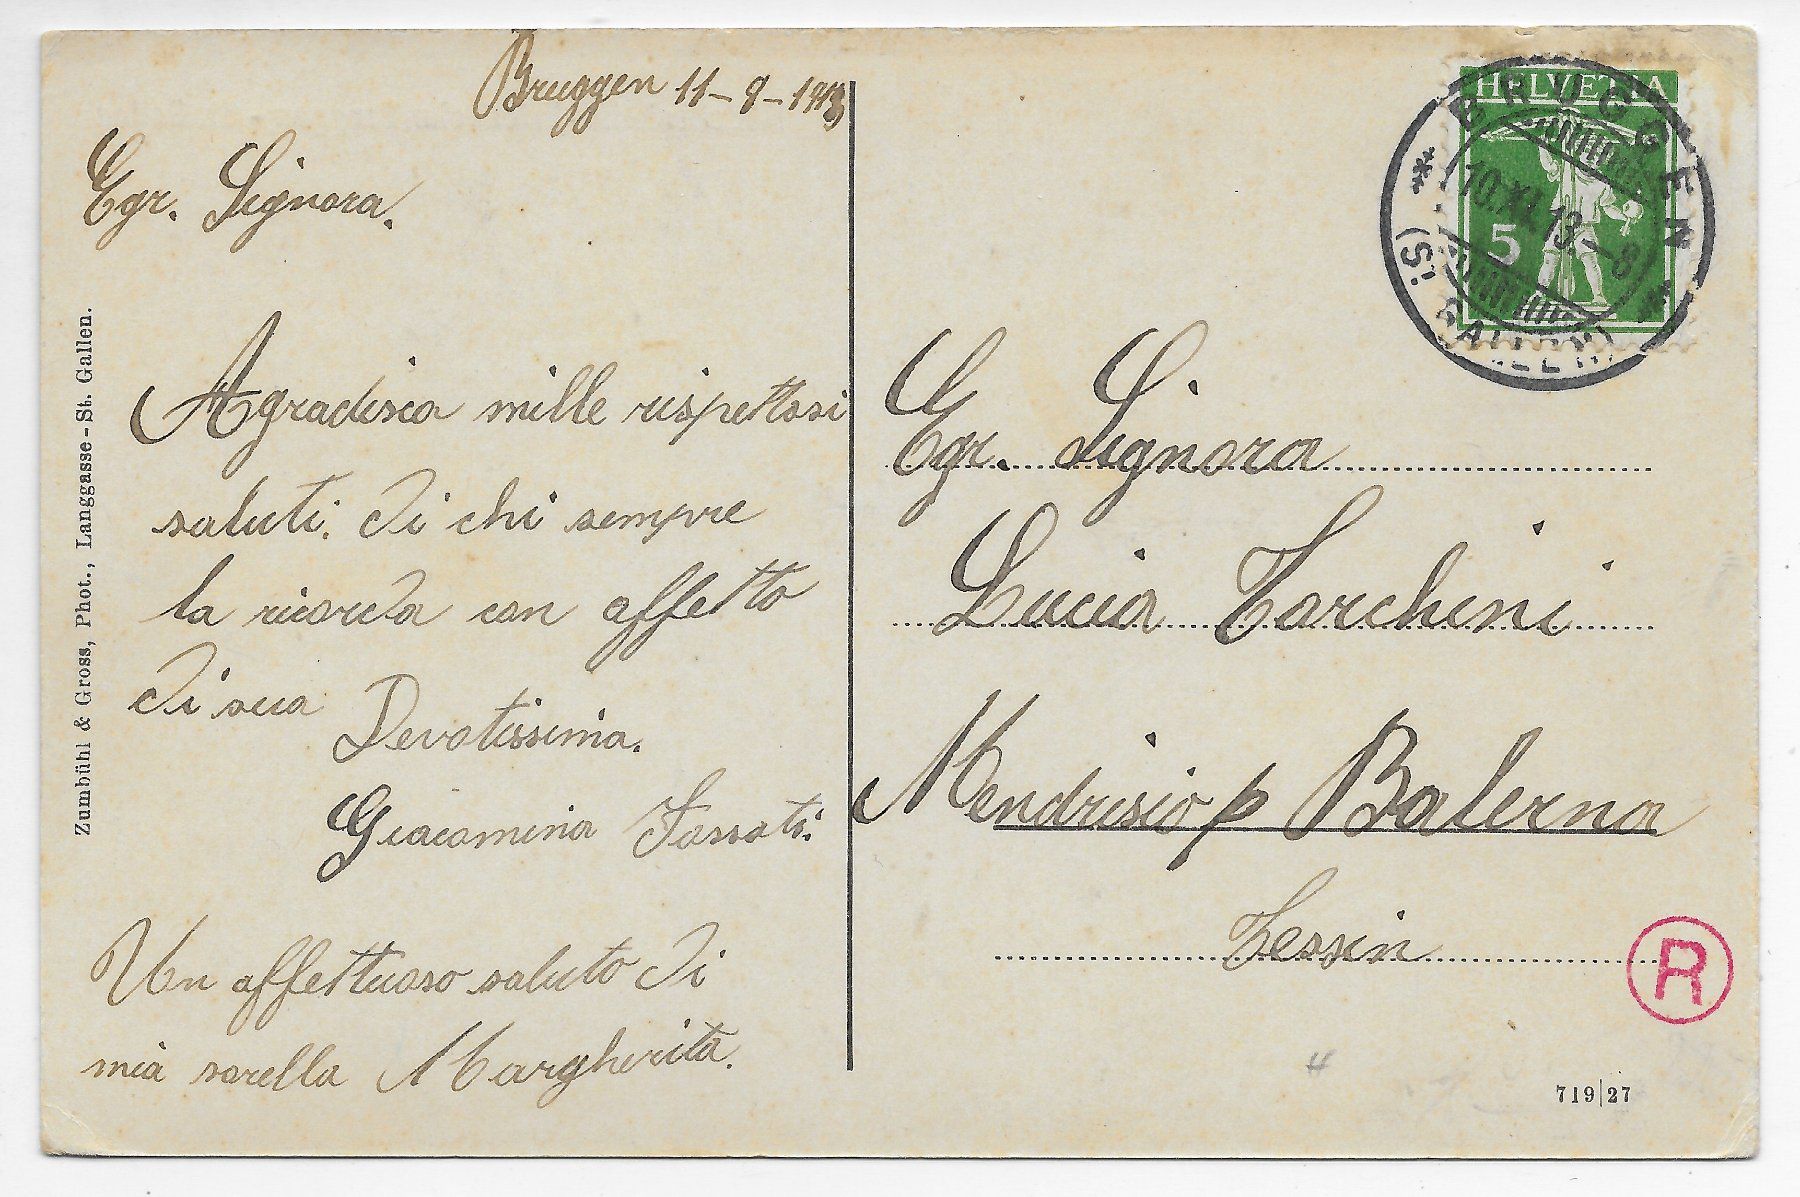 Bruggen 11-9-1913
Egr. Signora.
Agradisca mille rispettosi
saluti. di chi sempre
la ricorda con affetto
di sua
Devotissima.
Giacomina Fossati.
Un affettuoso saluto di
mia sorella Margherita.
Zumbühl & Gross, Phot., Langgasse-St. Gallen.
HELVETIA
5
BRUGGEN
10.XI.13.-8
(St. GALLEN)
Egr. Signora
Lucia Tarchini
Mendrisio p Balerna
Tessin
R
719|27